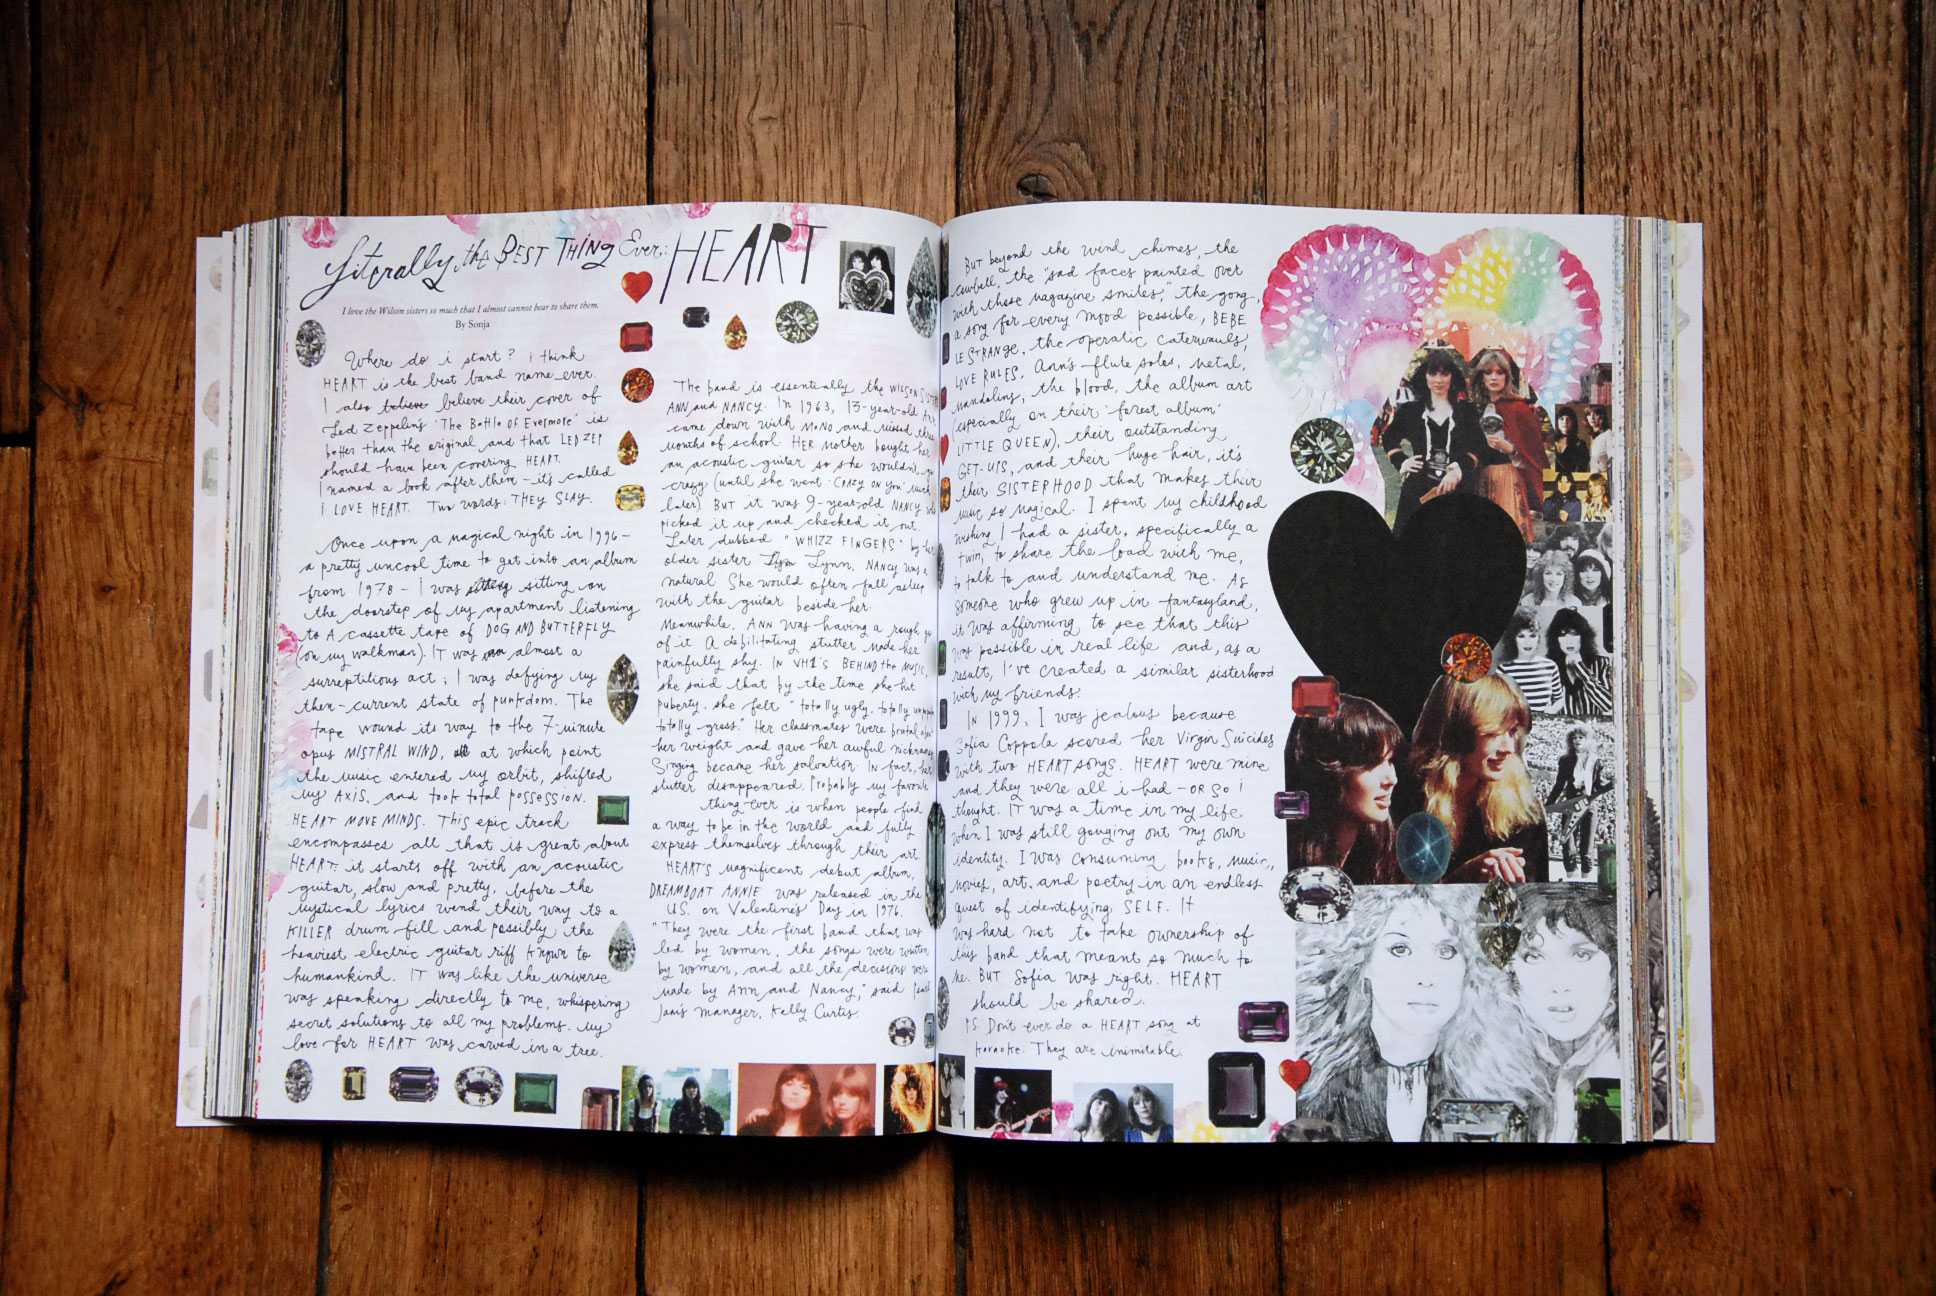 Literally the BEST THING Ever: HEART
I love the Wilson sisters so much that I almost cannot bear to share them.
By Sonja
Where do i start? I think
HEART is the best band name ever.
I also believe believe their cover of
Led Zeppelin's 'The Battle of Evermore' is
better than the original and that LED ZEP
should have been covering HEART.
I named a book after them – it's called
I LOVE HEART. Two words: THEY SLAY.
Once upon a magical night in 1996 –
a pretty uncool time to get into an album
from 1978 – I was sitting on
the doorstep of my apartment listening
to A cassette tape of DOG AND BUTTERFLY
(on my walkman). IT was almost a
surreptitious act; I was defying my
then-current state of punkdom. The
tape wound its way to the 7-minute
opus MISTRAL WIND, at which point
the music entered my orbit, shifted
my AXIS, and took total possession.
HEART MOVE MINDS. This epic track
encompasses all that is great about
HEART: it starts off with an acoustic
guitar, slow and pretty, before the
mystical lyrics wend their way to a
KILLER drum fill and possibly the
heaviest electric guitar riff known to
humankind. IT was like the universe
was speaking directly to me, whispering
secret solutions to all my problems. My
love for HEART was carved in a tree.
The band is essentially the WILSON
ANN and NANCY. In 1963, 13-year-old
came down with MONO and missed three
months of school. HER mother bought her
an acoustic guitar so she wouldn't go
crazy (until she went 'CRAZY ON YOU' much
later). BUT it was 9-year-old NANCY who
picked it up and checked it out.
Later dubbed "WHIZZ FINGERS" by her
older sister Lynn, NANCY was a
natural. She would often fall asleep
with the guitar beside her.
Meanwhile, ANN was having a rough go
of it. A debilitating stutter made her
painfully shy. IN VH1's BEHIND the MUSIC,
she said that by the time she hit
puberty, she felt "totally ugly, totally
totally gross." Her classmates were brutal about
her weight and gave her awful nicknames.
Singing became her salvation. IN fact, her
stutter disappeared. Probably my favorite
thing ever is when people find
a way to be in the world and fully
express themselves through their art.
HEART'S magnificent debut album,
DREAMBOAT ANNIE was released in the
U.S. on Valentine's Day in 1976.
"They were the first band that was
led by women, the songs were written
by women, and all the decisions were
made by Ann and Nancy," said
manager, Kelly Curtis.
BUT beyond the wind chimes, the
cowbell, the "sad faces painted over
with those magazine smiles," the gong,
a song for every mood possible, BEBE
LE STRANGE, the operatic caterwauls,
LOVE RULES, Ann's flute solos, metal,
mandolins, the blood, the album art
(especially on their 'forest album'
LITTLE QUEEN), their outstanding
GET-UPS, and their huge hair, it's
their SISTERHOOD that makes their
music so magical. I spent my childhood
wishing I had a sister, specifically a
twin, to share the load with me,
to talk to and understand me. As
someone who grew up in fantasyland,
it was affirming to see that this
was possible in real life and, as a
result, I've created a similar sisterhood
with my friends.
IN 1999, I was jealous because
Sofia Coppola scored her Virgin Suicides
with two HEART songs. HEART were mine
and they were all i had – OR SO I
thought. IT was a time in my life
when I was still gouging out my own
identity. I was consuming books, music,
movies, art, and poetry in an endless
quest of identifying SELF. It
was hard not to take ownership of
this band that meant so much to
me. BUT Sofia was right. HEART
should be shared.
PS Don't ever do a HEART song at
karaoke. They are inimitable.